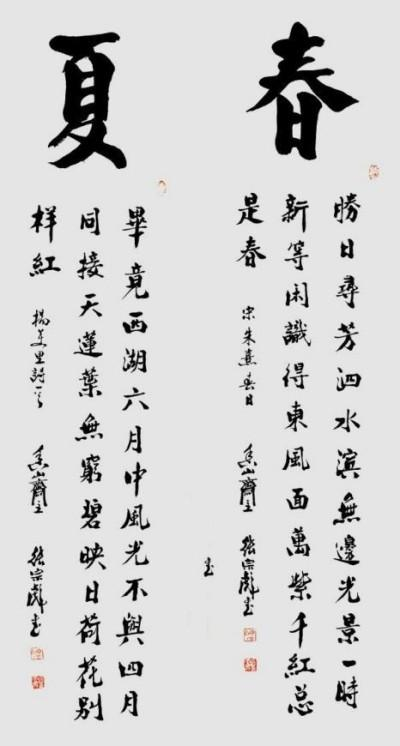 春
勝日尋芳泗水濱無邊光景一時
新等闲識得東風面萬紫千紅总
是春 宋朱熹春日 山齋主 宗彪书
书
夏
畢竟西湖六月中風光不與四月
同接天蓮葉無窮碧映日荷花别
样紅 楊万里詩一首 山齋主 宗彪书